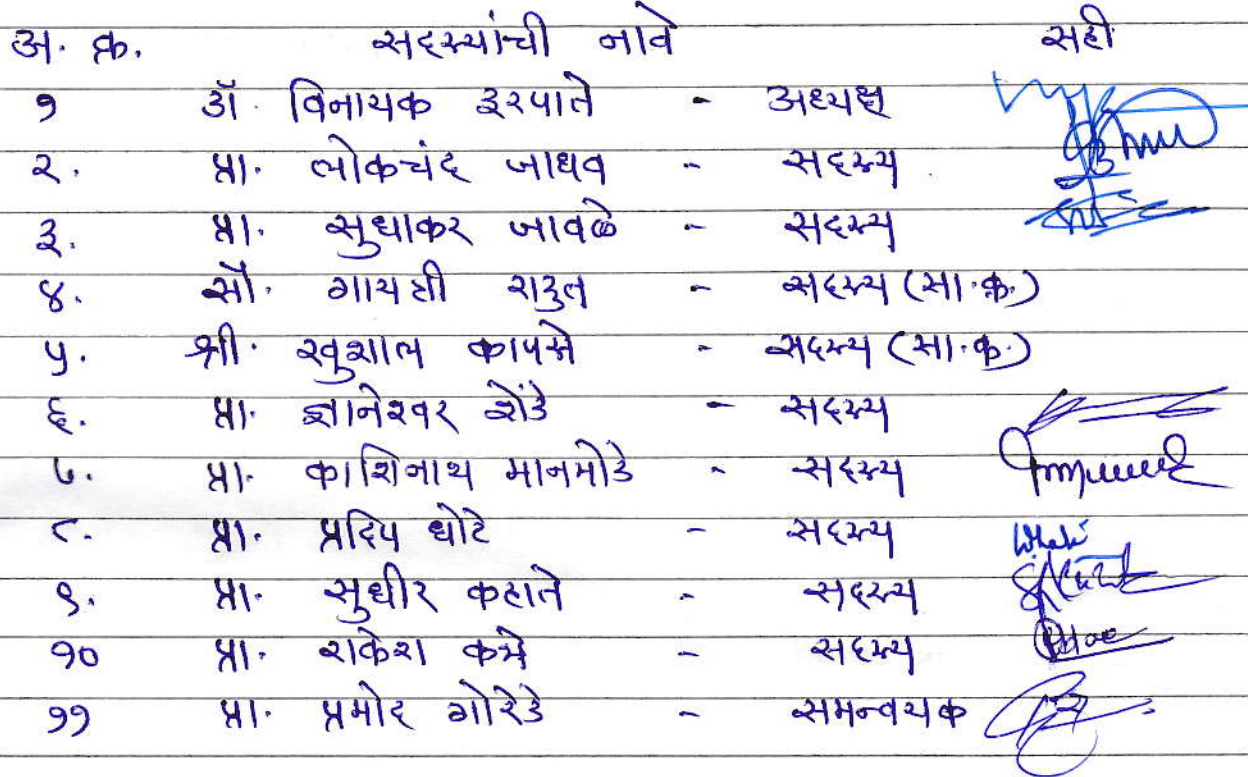 अ. क्र. सदस्यांची नावे सही
१ डॉ. विनायक इरपाते - अध्यक्ष
२. प्रा. लोकचंद जाधव - सदस्य
३. प्रा. सुधाकर जावळे - सदस्य
४. सौ. गायत्री राऊत - सदस्य (सा.क्र.)
५. श्री. खुशाल कापसे - सदस्य (सा.क.)
६. प्रा. ज्ञानेश्वर शेंडे - सदस्य
७. प्रा. काशिनाथ मानमोडे - सदस्य
८. प्रा. प्रदिप धोटे - सदस्य
९. प्रा. सुधीर कहाते - सदस्य
१० प्रा. राकेश कभे - सदस्य
११ प्रा. प्रमोद गोरेडे - समन्वयक